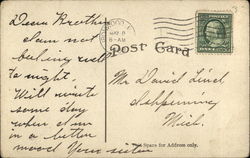 Dear Brother
I am not
feeling well
to night.
Will write
some day
when I am
in a better
mood Your sister
MAY 8
6-AM
Post Card
Mr David Lind
Ishpeming
Mich.
Space for Address only.